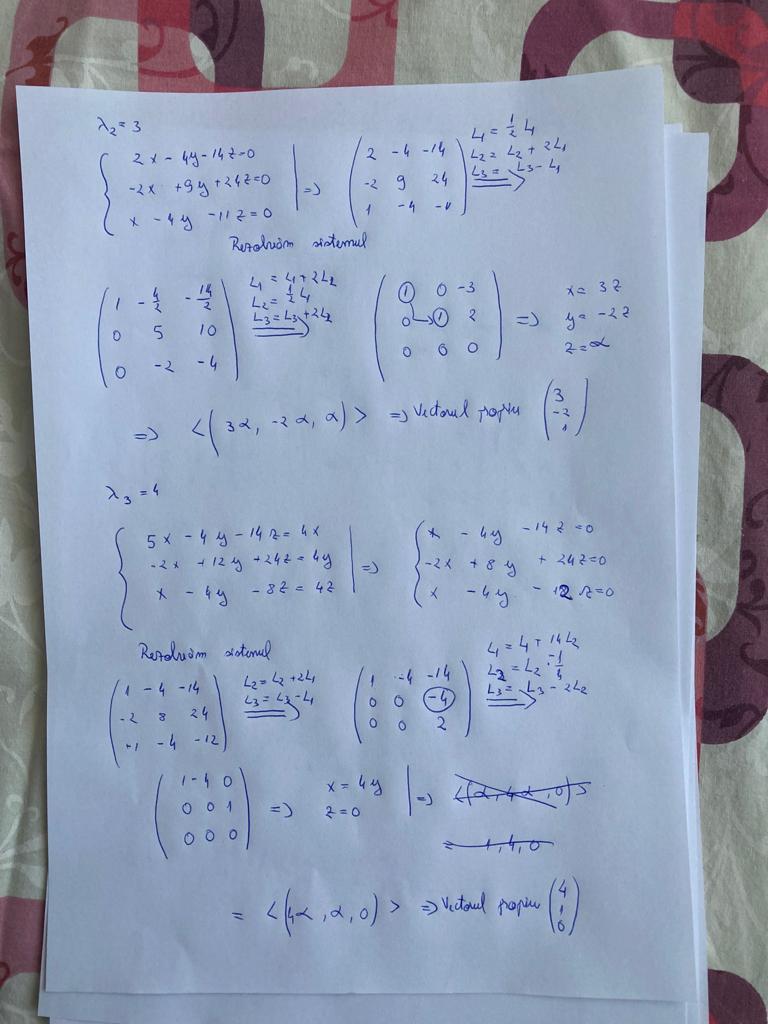 λ₂ = 3
{ 2x - 4y - 14z = 0
-2x + 9y + 24z = 0
x - 4y - 11z = 0 | => ( 2 -4 -14
-2 9 24
1 -4 -11 ) L₁ = 1/2 L₁
L₂ = L₂ + 2L₁
L₃ = L₃ - L₁
Rezolvăm sistemul
( 1 -4/2 -14/2
0 5 10
0 -2 -4 ) L₁ = L₁ + 2L₂
L₂ = 1/2 L₁
L₃ = L₃ + 2L₂ ( 1 0 -3
0 1 2
0 0 0 ) => x = 3z
y = -2z
z = α
=> <(3α, -2α, α)> => Vectorul propriu ( 3
-2
1 )
λ₃ = 4
{ 5x - 4y - 14z = 4x
-2x + 12y + 24z = 4y
x - 4y - 8z = 4z | => { x - 4y - 14z = 0
-2x + 8y + 24z = 0
x - 4y - 12z = 0
Rezolvăm sistemul
( 1 -4 -14
-2 8 24
+1 -4 -12 ) L₂ = L₂ + 2L₁
L₃ = L₃ - L₁ ( 1 -4 -14
0 0 -4
0 0 2 ) L₁ = L₁ + 14L₂
L₂ = L₂ · -1/4
L₃ = L₃ - 2L₂
( 1 -4 0
0 0 1
0 0 0 ) => x = 4y
z = 0 | => <(α, 4α, 0)>
= 1, 4, 0
= <(4α, α, 0)> => Vectorul propriu ( 4
1
0 )